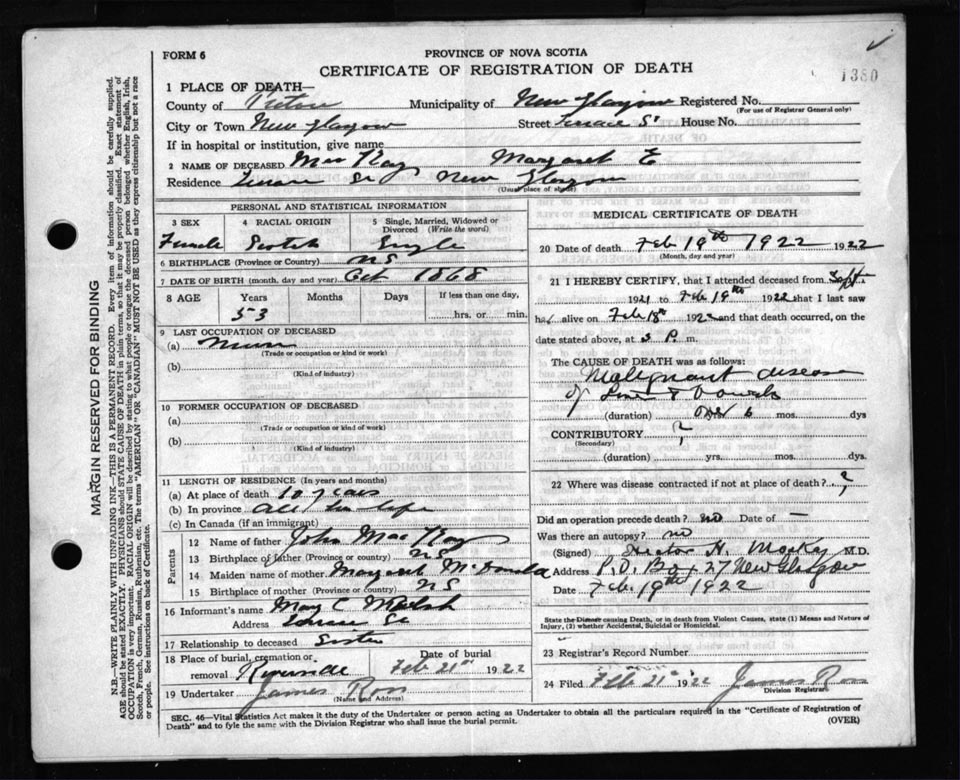 1380
FORM 6
PROVINCE OF NOVA SCOTIA
CERTIFICATE OF REGISTRATION OF DEATH
1 PLACE OF DEATH—
County of Pictou Municipality of New Glasgow Registered No.
(For use of Registrar General only)
City or Town New Glasgow Street Terrace St House No.
If in hospital or institution, give name
2 NAME OF DECEASED MacKay Margaret E
Residence Terrace St New Glasgow
(Usual place of abode)
PERSONAL AND STATISTICAL INFORMATION
3 SEX 4 RACIAL ORIGIN 5 Single, Married, Widowed or Divorced (Write the word)
Female Scotch Single
6 BIRTHPLACE (Province or Country) N S
7 DATE OF BIRTH (month, day and year) Oct 1868
8 AGE Years Months Days If less than one day,
53 hrs. or min.
9 LAST OCCUPATION OF DECEASED
(a) Nurse
(Trade or occupation or kind or work)
(b)
(Kind of industry)
10 FORMER OCCUPATION OF DECEASED
(a)
(Trade or occupation or kind of work)
(b)
(Kind of industry)
11 LENGTH OF RESIDENCE (In years and months)
(a) At place of death 10 years
(b) In province all her life
(c) In Canada (if an immigrant)
Parents
12 Name of father John MacKay
13 Birthplace of father (Province or Country) N S
14 Maiden name of mother Margaret McDonald
15 Birthplace of mother (Province or Country) N S
16 Informant's name May C
Address Terrace St
17 Relationship to deceased Sister
18 Place of burial, cremation or removal Riverside Date of burial Feb 21st 1922
19 Undertaker James Ross
(Name and Address)
MEDICAL CERTIFICATE OF DEATH
20 Date of death Feb 19th 1922 1922
(Month, day and year)
21 I HEREBY CERTIFY, that I attended deceased from Sept
1921 to Feb 19th 1922 that I last saw
her alive on Feb 18th 1922 and that death occurred, on the
date stated above, at 3 P. m.
The CAUSE OF DEATH was as follows:
Malignant disease
of Liver & Bowels
(duration) yrs. 6 mos. dys
CONTRIBUTORY ?
(Secondary)
(duration) yrs. mos. dys
22 Where was disease contracted if not at place of death? ?
Did an operation precede death? no Date of —
Was there an autopsy? no
(Signed) Hector H. MacKay M.D.
Address P.O. Box 27 New Glasgow
Date Feb 19th 1922
State the Disease causing Death, or in death from Violent Causes, state (1) Means and Nature of
Injury, (2) whether Accidental, Suicidal or Homicidal.
23 Registrar's Record Number
24 Filed Feb 21st 1922 James Ross
Division Registrar.
SEC. 46—Vital Statistics Act makes it the duty of the Undertaker or person acting as Undertaker to obtain all the particulars required in the "Certificate of Registration of
Death" and to fyle the same with the Division Registrar who shall issue the burial permit. (OVER)
MARGIN RESERVED FOR BINDING
N.B.—WRITE PLAINLY WITH UNFADING INK—THIS IS A PERMANENT RECORD. Every item of information should be carefully supplied.
AGE should be stated EXACTLY. PHYSICIANS should STATE CAUSE OF DEATH in plain terms, so that it may be properly classified. Exact statement of
OCCUPATION is very important. RACIAL ORIGIN will be described by stating to what people or tongue the deceased person belonged whether English, Irish,
Scotch, French, German, Russian, Ruthenian, etc. The terms "AMERICAN" OR "CANADIAN" MUST NOT BE USED as they express citizenship but not a race
or people. See instructions on back of Certificate.